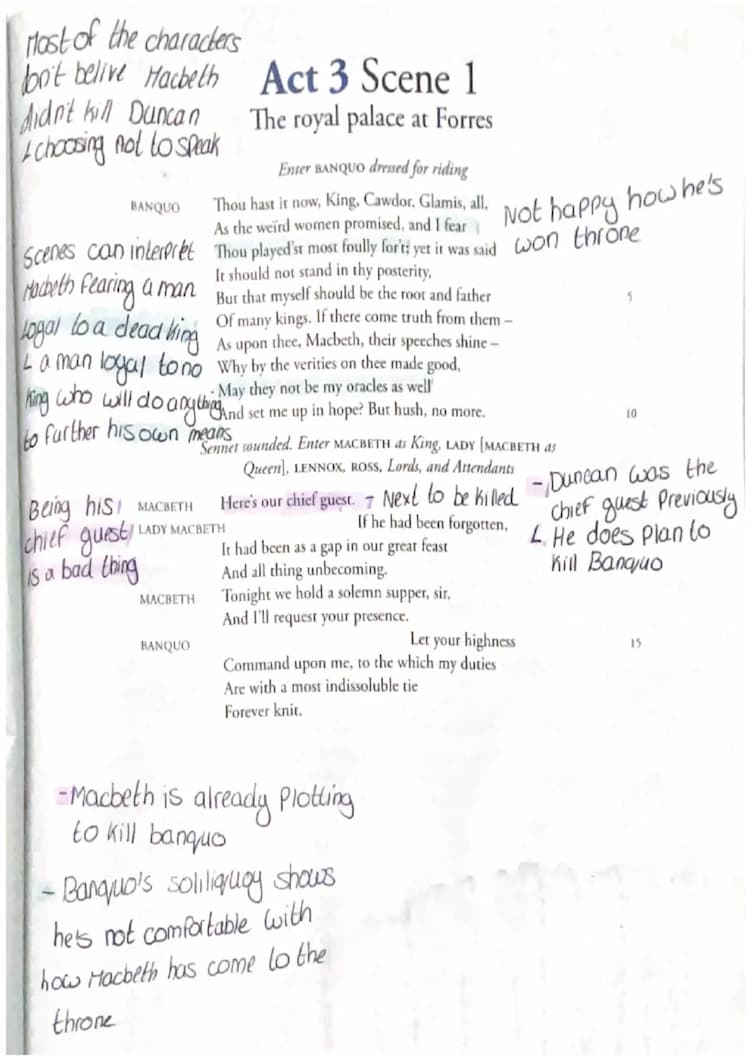 Most of the characters
don't belive Macbeth
didn't kill Duncan
↳ choosing not to speak
Act 3 Scene 1
The royal palace at Forres
Enter BANQUO dressed for riding
BANQUO Thou hast it now, King, Cawdor, Glamis, all,
As the weïrd women promised, and I fear
Thou played'st most foully for't; yet it was said
It should not stand in thy posterity,
But that myself should be the root and father 5
Of many kings. If there come truth from them –
As upon thee, Macbeth, their speeches shine –
Why by the verities on thee made good,
May they not be my oracles as well
And set me up in hope? But hush, no more. 10
Not happy how he's
won throne
Scenes can interpret
Macbeth fearing a man
loyal to a dead king
↳ a man loyal to no
king who will do anything
to further his own means
Sennet sounded. Enter MACBETH as King, LADY [MACBETH as
Queen], LENNOX, ROSS, Lords, and Attendants
MACBETH Here's our chief guest. → Next to be killed
LADY MACBETH If he had been forgotten,
It had been as a gap in our great feast
And all thing unbecoming.
MACBETH Tonight we hold a solemn supper, sir,
And I'll request your presence.
BANQUO Let your highness 15
Command upon me, to the which my duties
Are with a most indissoluble tie
Forever knit.
Being his
chief guest
is a bad thing
- Duncan was the
chief guest previously
↳ He does plan to
kill Banquo
- Macbeth is already plotting
to kill banquo
- Banquo's soliliquoy shows
he's not comfortable with
how Macbeth has come to the
throne